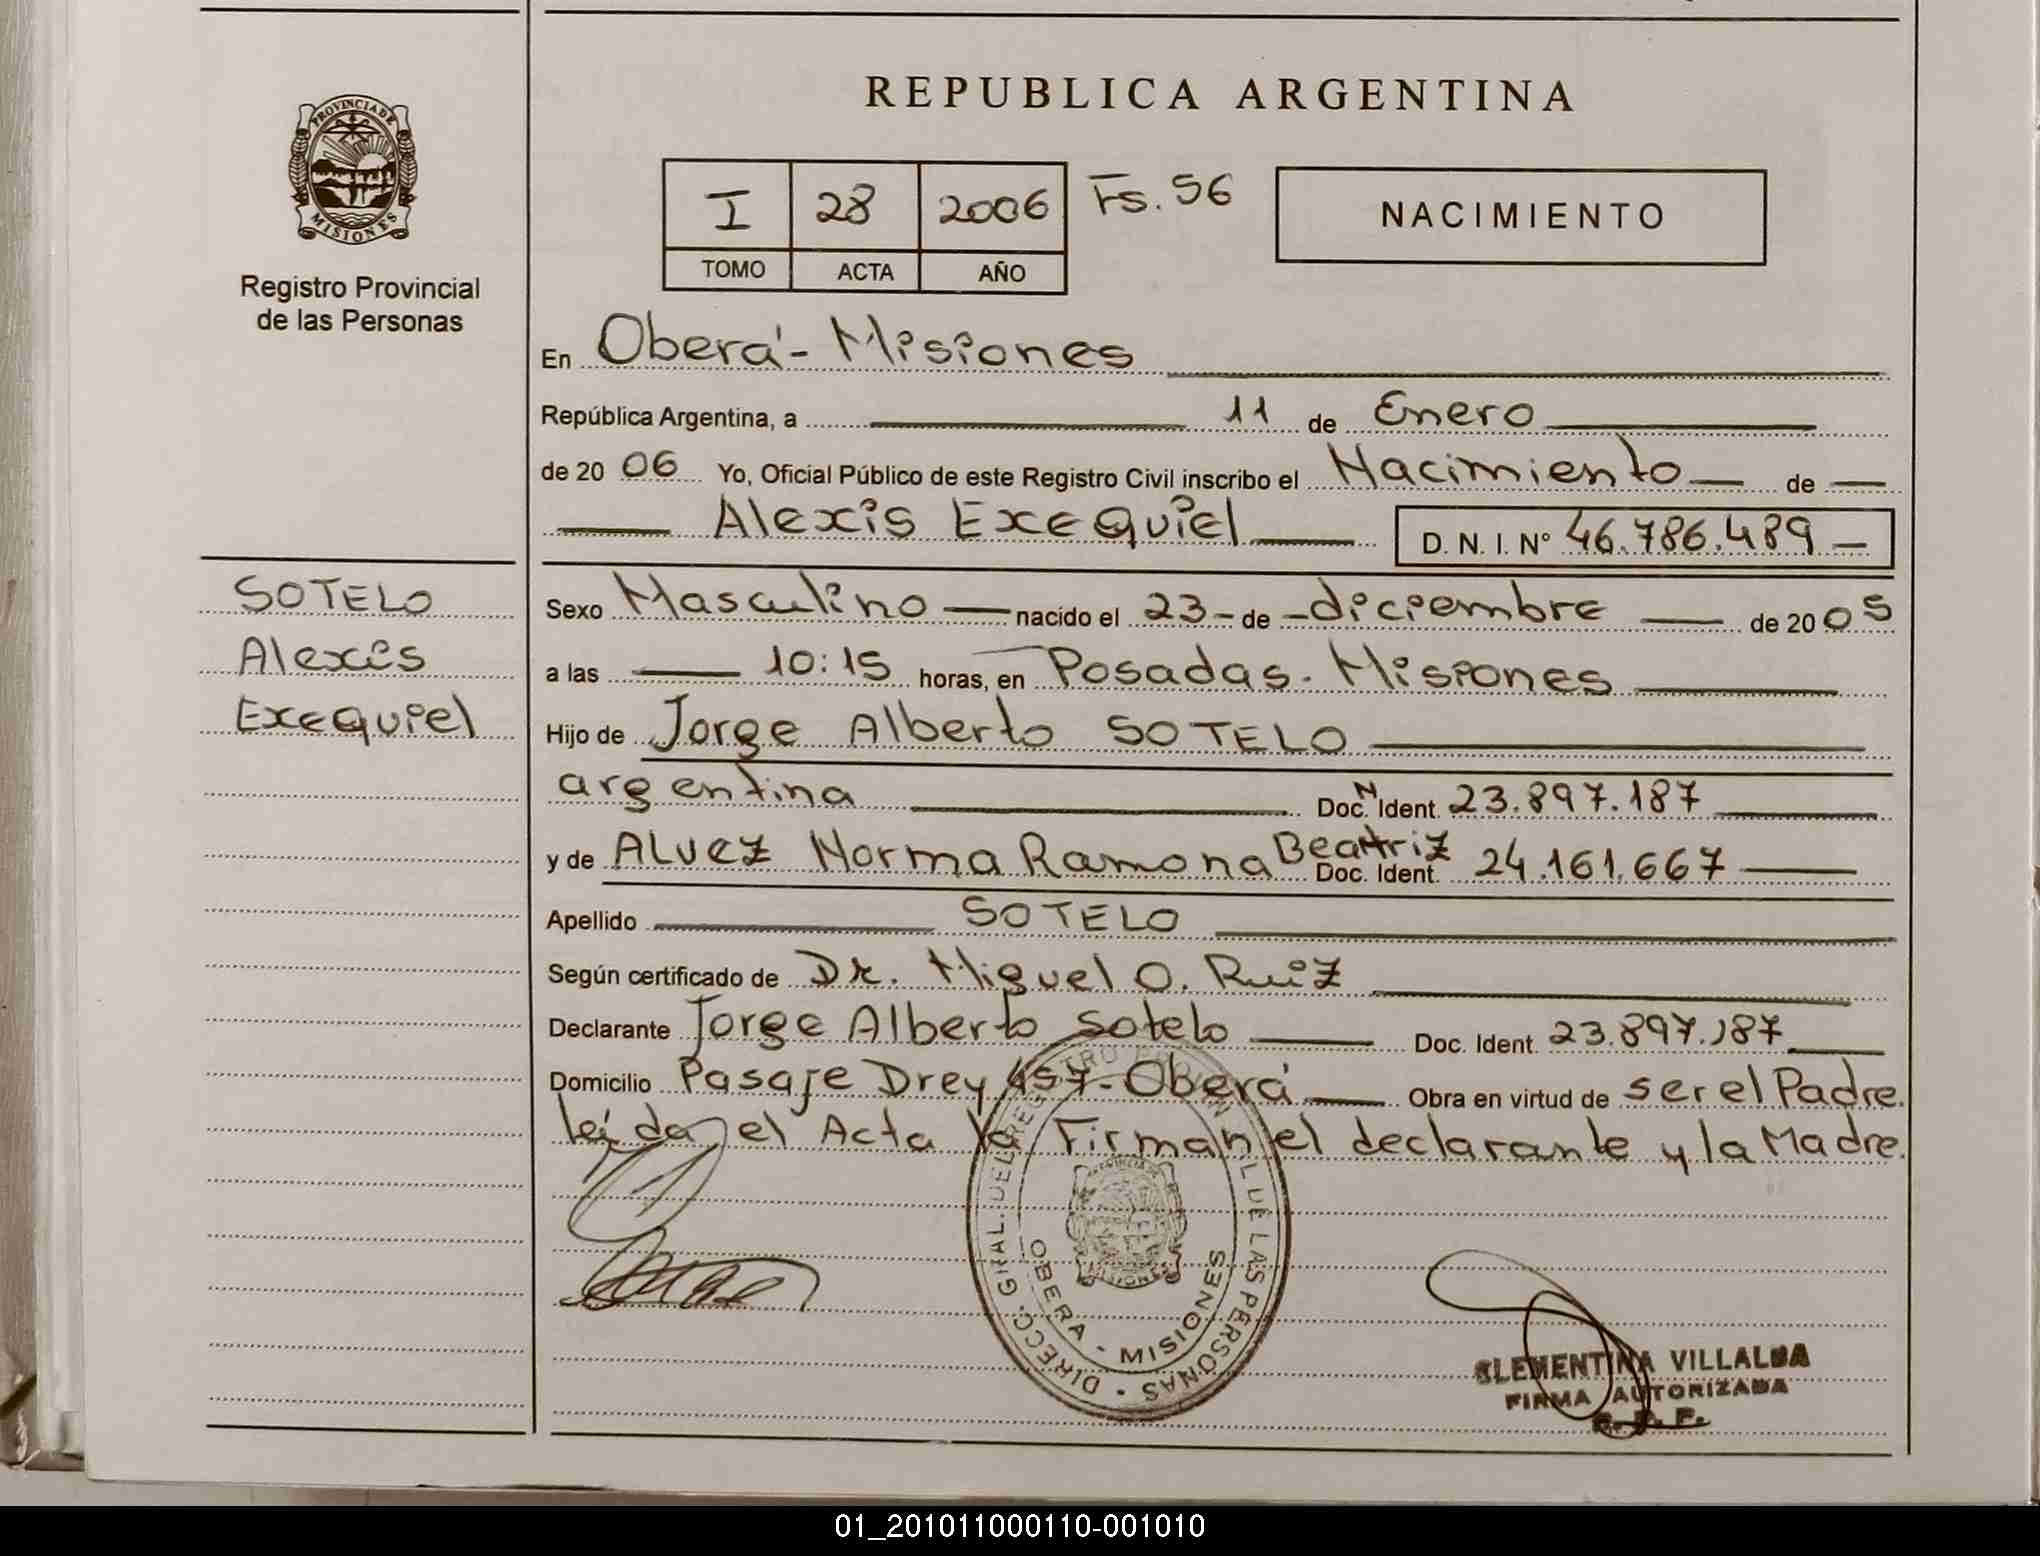 REPUBLICA ARGENTINA
PROVINCIA DE MISIONES
Registro Provincial
de las Personas
I 28 2006 Fs. 56
TOMO ACTA AÑO
NACIMIENTO
En Oberá - Misiones
República Argentina, a 11 de Enero
de 20 06 Yo, Oficial Público de este Registro Civil inscribo el Nacimiento de
Alexis Exequiel D. N. I. Nº 46.786.489
SOTELO
Alexis
Exequiel
Sexo Masculino nacido el 23 - de - diciembre de 20 05
a las 10:15 horas, en Posadas - Misiones
Hijo de Jorge Alberto SOTELO
argentina Doc. N Ident. 23.897.187
y de ALVEZ Norma Ramona Beatriz Doc. Ident. 24.161.667
Apellido SOTELO
Según certificado de Dr. Miguel O. Ruiz
Declarante Jorge Alberto Sotelo Doc. Ident. 23.897.187
Domicilio Pasaje Drey 457 - Oberá Obra en virtud de ser el Padre.
leída el Acta la Firman el declarante y la Madre.
DIRECC. GRAL. DEL REGISTRO PROVINCIAL DE LAS PERSONAS
OBERA - MISIONES
CLEMENTINA VILLALBA
FIRMA AUTORIZADA
01_201011000110-001010